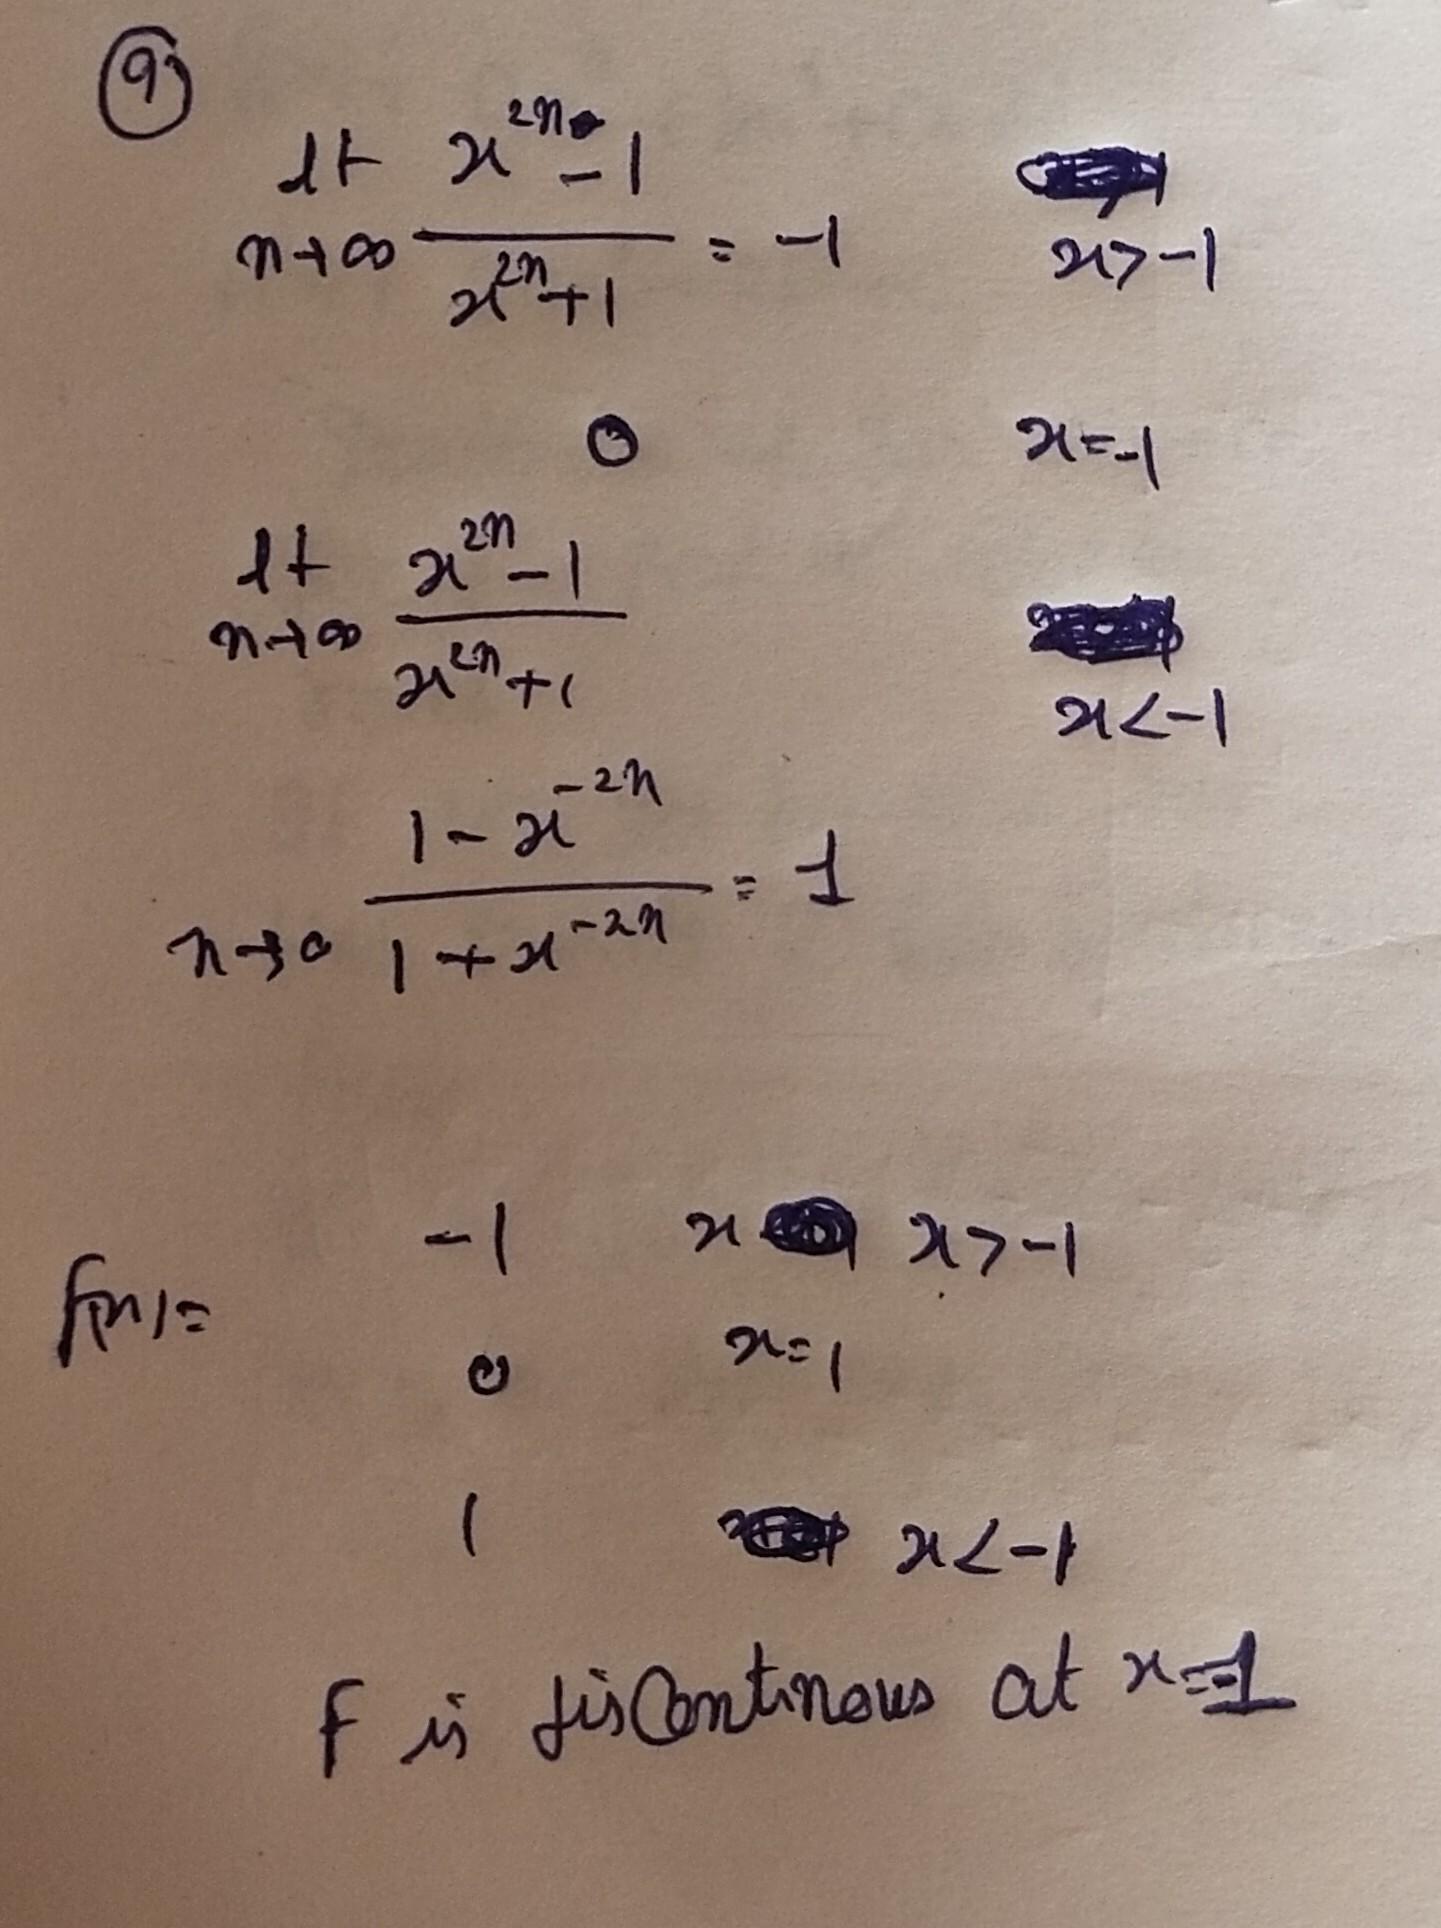 9
lt x^{2n} - 1
n→∞ x^{2n} + 1 = -1 x > -1
0 x = -1
lt x^{2n} - 1
n→∞ x^{2n} + 1 x < -1
1 - x^{-2n}
n→∞ 1 + x^{-2n} = 1
f(x) = -1 x x > -1
0 x = 1
1 x < -1
f is discontinous at x = -1